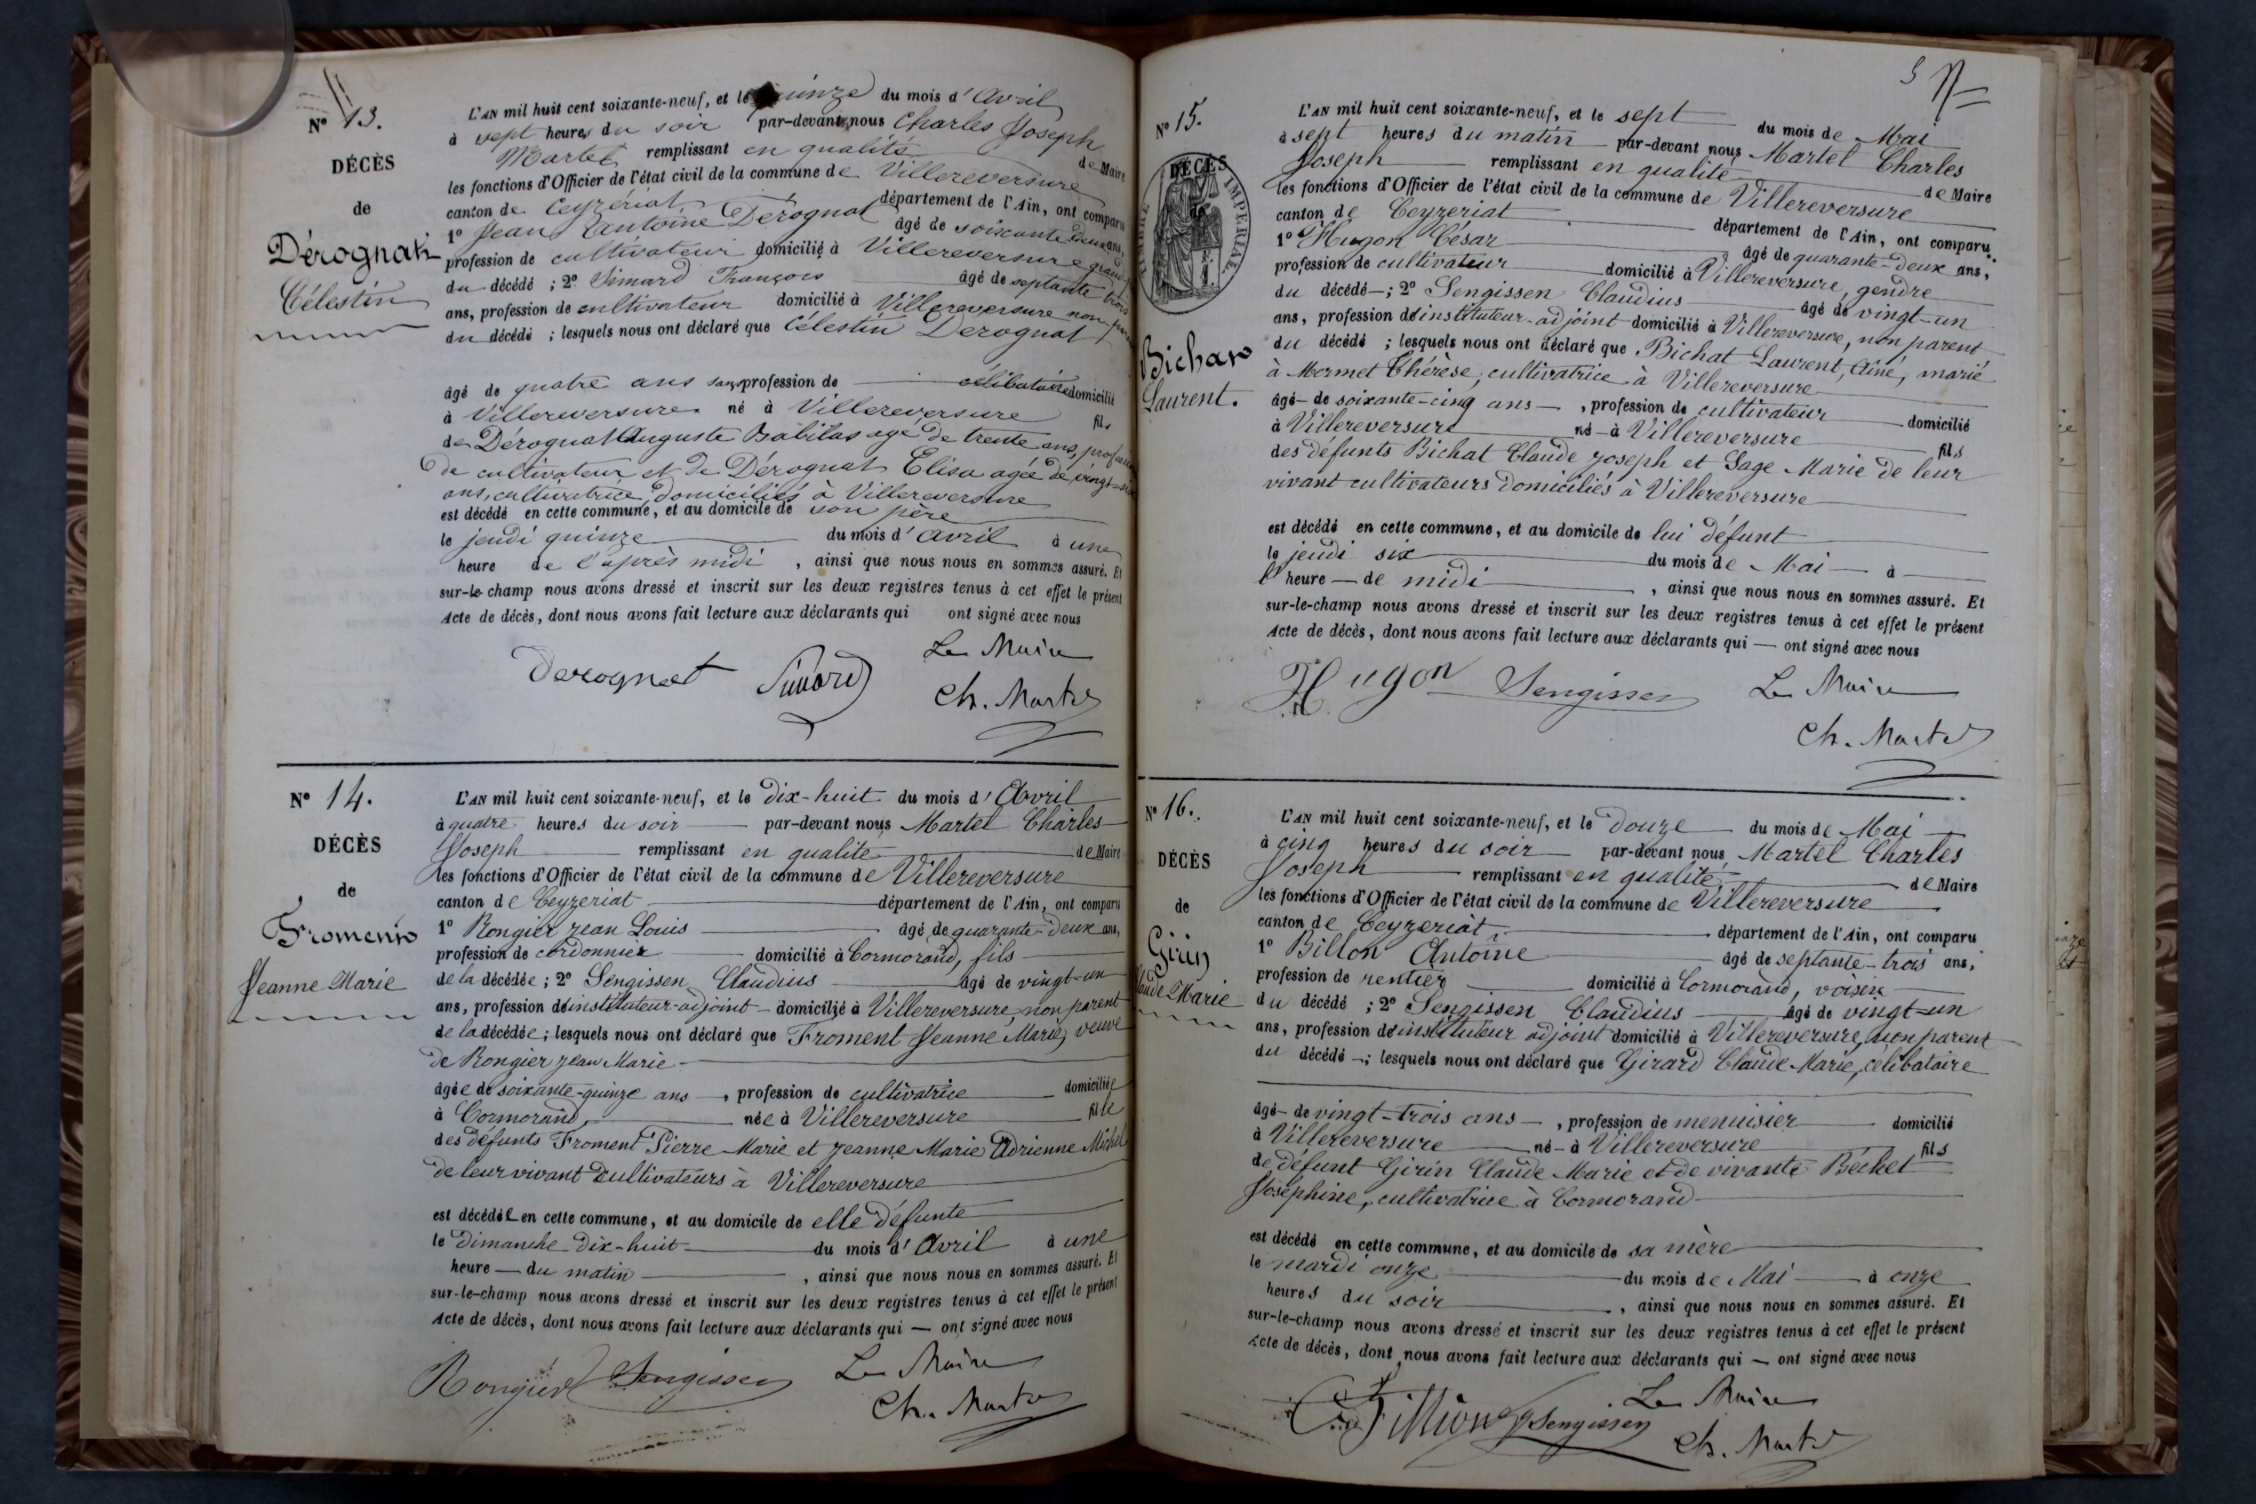 Nº 13.
DÉCÈS
de
Dérognat
Célestin
L'AN mil huit cent soixante-neuf, et le quinze du mois d'Avril
à sept heures du soir par-devant nous Charles Joseph
Martel remplissant en qualité de Maire
les fonctions d'Officier de l'état civil de la commune de Villereversure
canton de Ceyzériat département de l'Ain, ont comparu
1º Jean Antoine Dérognat âgé de soixante deux ans,
profession de cultivateur domicilié à Villereversure grand
du décédé ; 2º Simard François âgé de septante trois
ans, profession de cultivateur domicilié à Villereversure non
du décédé ; lesquels nous ont déclaré que Célestin Derognat
âgé de quatre ans sans profession de célibataire domicilié
à Villereversure né à Villereversure fils
de Dérognat Auguste Babilas agé de trente ans,
de cultivateur et de Dérognat Elisa agée de vingt-six
ans, cultivatrice, domiciliés à Villereversure
est décédé en cette commune, et au domicile de son père
le jeudi quinze du mois d'Avril à une
heure de l'après midi, ainsi que nous nous en sommes assuré. Et
sur-le-champ nous avons dressé et inscrit sur les deux registres tenus à cet effet le présent
Acte de décès, dont nous avons fait lecture aux déclarants qui ont signé avec nous
Derognat Simard Le Maire
Ch. Martel
Nº 14.
DÉCÈS
de
Froment
Jeanne Marie
L'AN mil huit cent soixante-neuf, et le dix-huit du mois d'Avril
à quatre heures du soir par-devant nous Martel Charles
Joseph remplissant en qualité de Maire
les fonctions d'Officier de l'état civil de la commune de Villereversure
canton de Ceyzeriat département de l'Ain, ont comparu
1º Rongier Jean Louis âgé de quarante-deux ans,
profession de cordonnier domicilié à Cormorand, fils
de la décédée ; 2º Sengissen Claudius âgé de vingt-un
ans, profession d'instituteur-adjoint domicilié à Villereversure, non parent
de la décédée ; lesquels nous ont déclaré que Froment Jeanne Marie, veuve
de Rongier Jean Marie
âgée de soixante-quinze ans, profession de cultivatrice domiciliée
à Cormorand, née à Villereversure fille
des défunts Froment Pierre Marie et Jeanne Marie Adrienne Michel
de leur vivant cultivateurs à Villereversure
est décédée en cette commune, et au domicile de elle défunte
le Dimanche Dix-huit du mois d'Avril à une
heure — du matin, ainsi que nous nous en sommes assuré. Et
sur-le-champ nous avons dressé et inscrit sur les deux registres tenus à cet effet le présent
Acte de décès, dont nous avons fait lecture aux déclarants qui — ont signé avec nous
Rongier Sengissen Le Maire
Ch. Martel
5
Nº 15.
DÉCÈS
TIMBRE IMPÉRIAL
Bichat
Laurent.
L'AN mil huit cent soixante-neuf, et le sept du mois de Mai
à sept heures du matin par-devant nous Martel Charles
Joseph remplissant en qualité de Maire
les fonctions d'Officier de l'état civil de la commune de Villereversure
canton de Ceyzeriat département de l'Ain, ont comparu
1º Hugon César âgé de quarante-deux ans,
profession de cultivateur domicilié à Villereversure, gendre
du décédé — ; 2º Sengissen Claudius âgé de vingt-un
ans, profession d'instituteur-adjoint domicilié à Villereversure, non parent
du décédé ; lesquels nous ont déclaré que Bichat Laurent, Ainé, marié
à Mermet Thérèse, cultivatrice à Villereversure
âgé — de soixante-cinq ans —, profession de cultivateur domicilié
à Villereversure né — à Villereversure fils
des défunts Bichat Claude Joseph et Sage Marie de leur
vivant cultivateurs domiciliés à Villereversure
est décédé en cette commune, et au domicile de lui défunt
le jeudi six du mois de Mai — à
l'heure — de midi, ainsi que nous nous en sommes assuré. Et
sur-le-champ nous avons dressé et inscrit sur les deux registres tenus à cet effet le présent
Acte de décès, dont nous avons fait lecture aux déclarants qui — ont signé avec nous
Hugon Sengissen Le Maire
Ch. Martel
Nº 16.
DÉCÈS
de
Girin
Claude Marie
L'AN mil huit cent soixante-neuf, et le douze du mois de Mai
à cinq heures du soir par-devant nous Martel Charles
Joseph remplissant en qualité de Maire
les fonctions d'Officier de l'état civil de la commune de Villereversure
canton de Ceyzeriat département de l'Ain, ont comparu
1º Billon Antoine âgé de septante-trois ans,
profession de rentier domicilié à Cormorand, voisin
du décédé ; 2º Sengissen Claudius âgé de vingt-un
ans, profession d'instituteur adjoint domicilié à Villereversure, non parent
du décédé — ; lesquels nous ont déclaré que Girard Claude-Marie, célibataire
âgé — de vingt-trois ans —, profession de menuisier domicilié
à Villereversure né — à Villereversure fils
de défunt Girin Claude Marie et de vivante Béchet
Joséphine, cultivatrice à Cormorand
est décédé en cette commune, et au domicile de sa mère
le mardi onze du mois de Mai — à onze
heures du soir, ainsi que nous nous en sommes assuré. Et
sur-le-champ nous avons dressé et inscrit sur les deux registres tenus à cet effet le présent
Acte de décès, dont nous avons fait lecture aux déclarants qui — ont signé avec nous
Billion Sengissen Le Maire
Ch. Martel